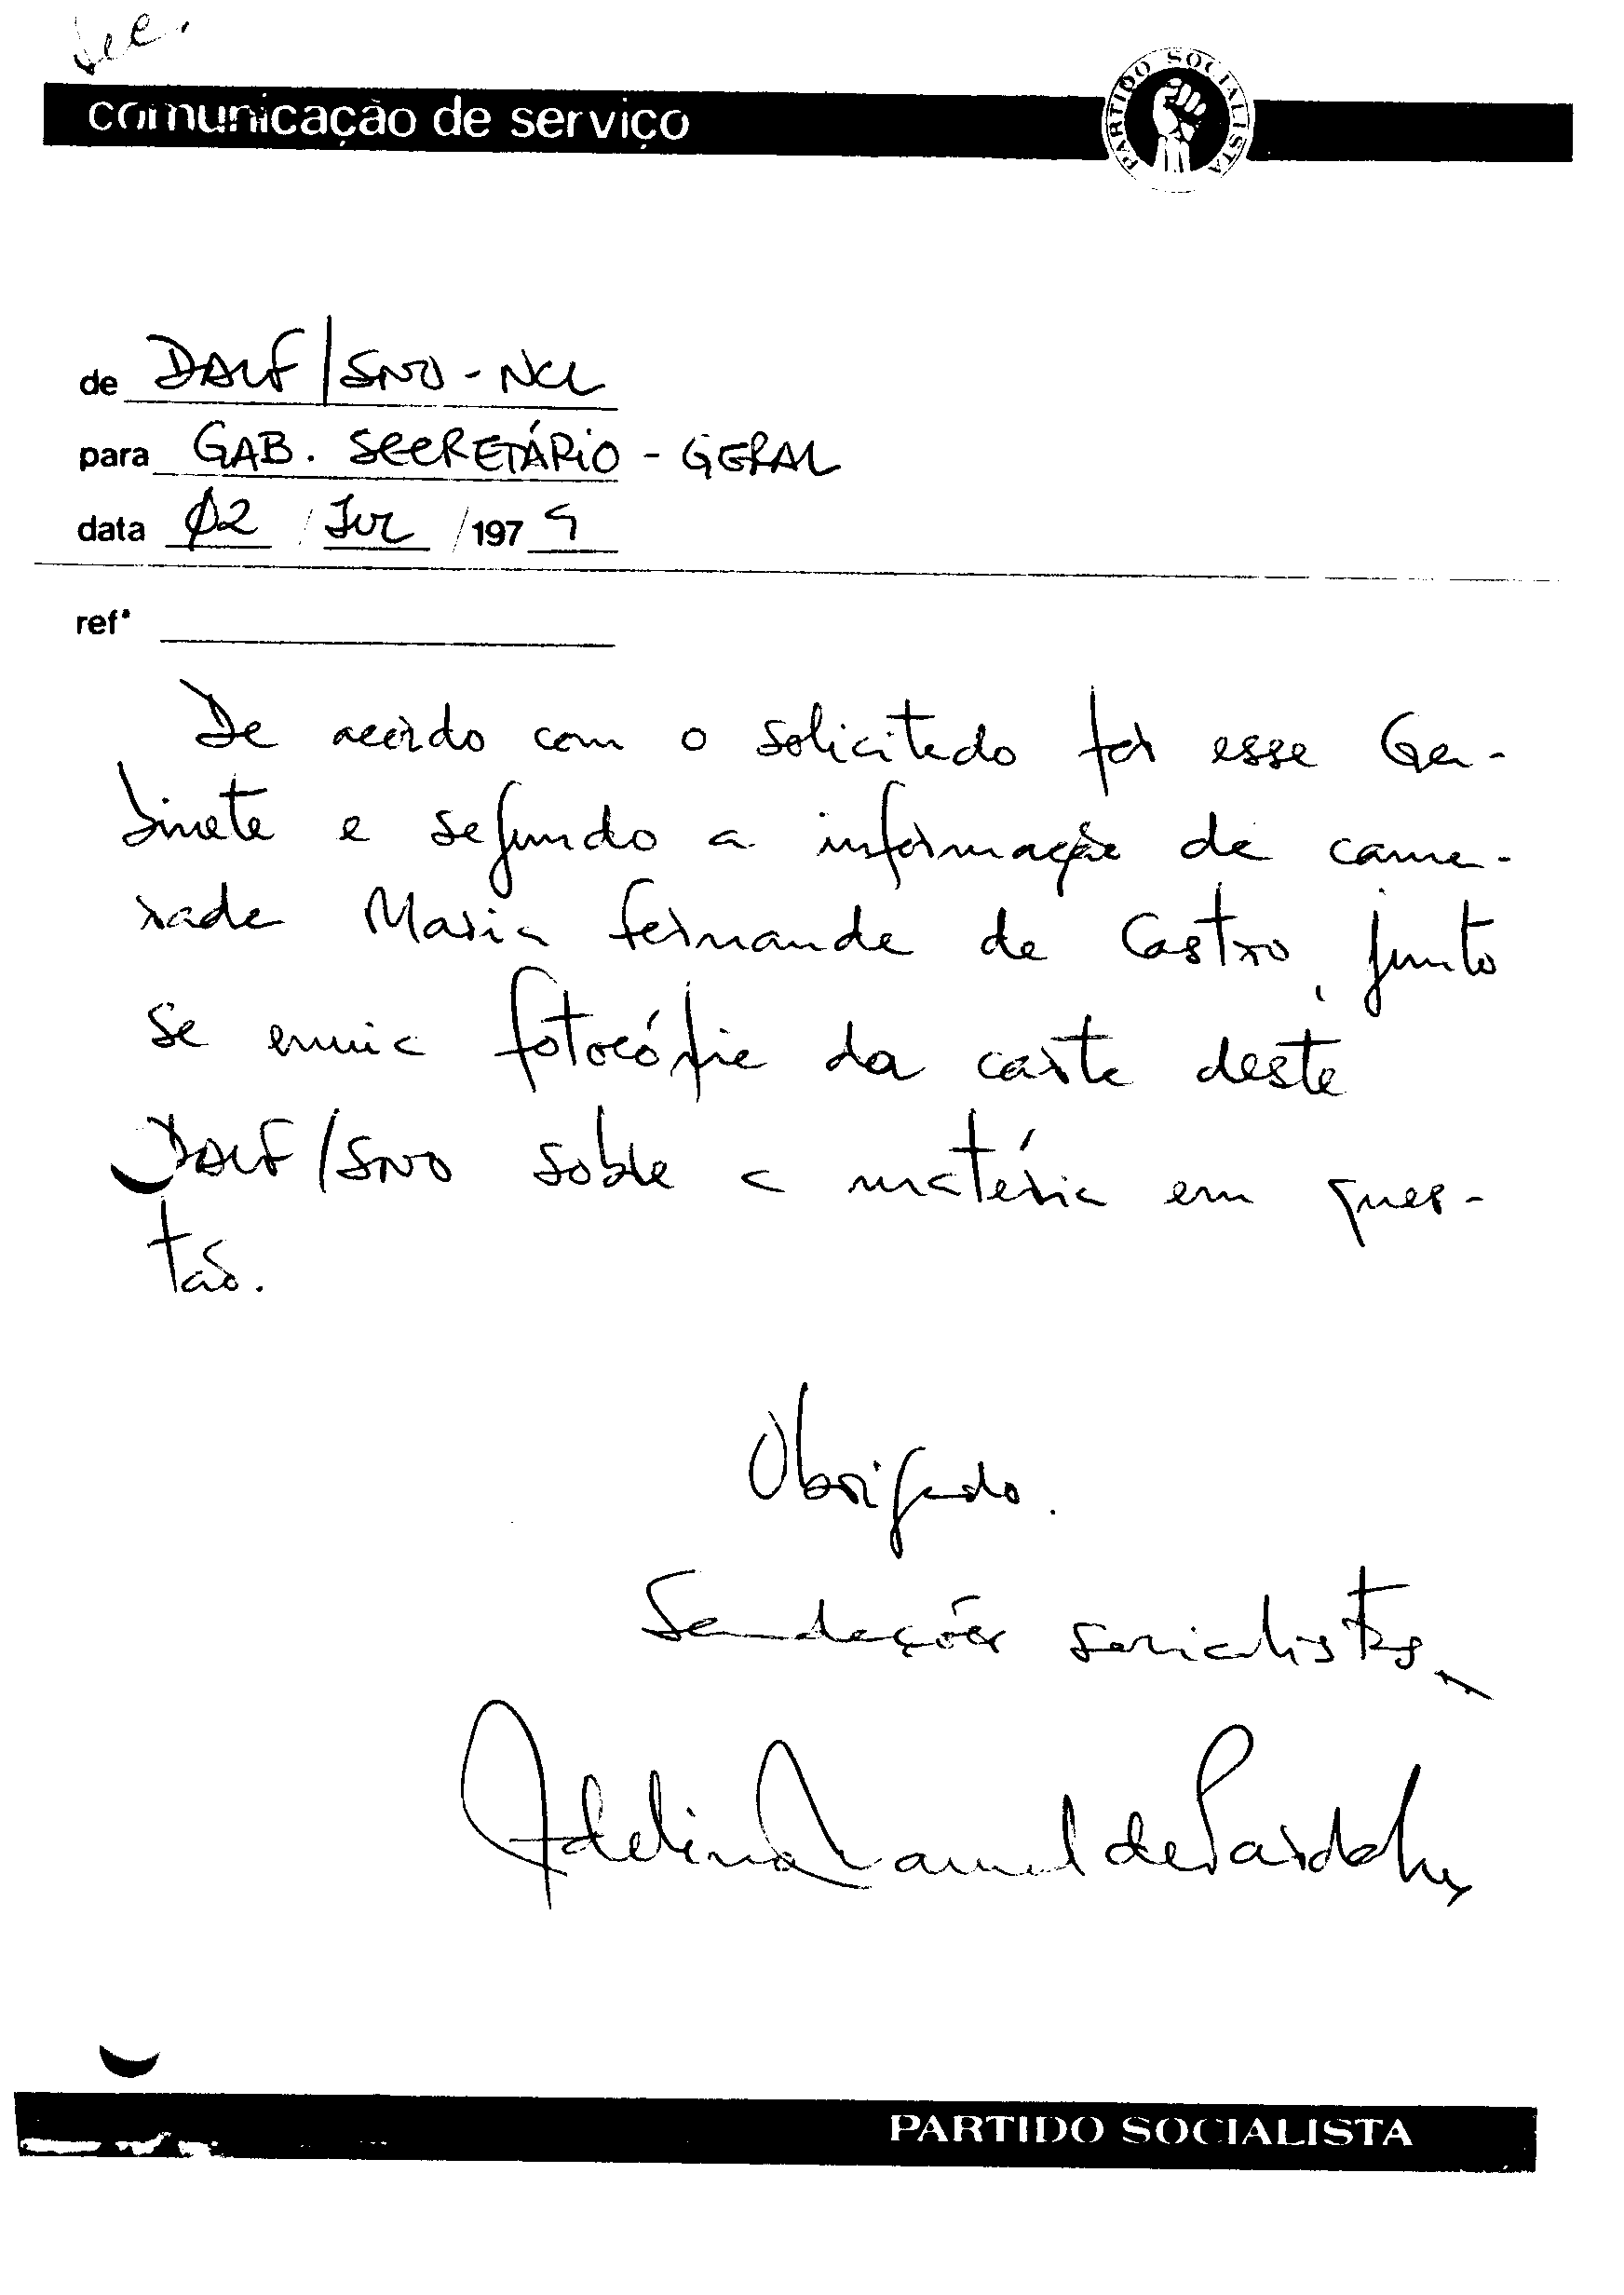 comunicação de serviço
PARTIDO SOCIALISTA
de DALF/SNO-NCL
para GAB. SECRETÁRIO-GERAL
data 02 / JUL / 1979
refª
De acordo com o solicitado por esse Ga-
binete e segundo a informação da cama-
rada Maria Fernanda de Castro, junto
se envia fotocópia da carta deste
DALF/SNO sobre a matéria em ques-
tão.
Obrigado.
Saudações socialistas,
PARTIDO SOCIALISTA